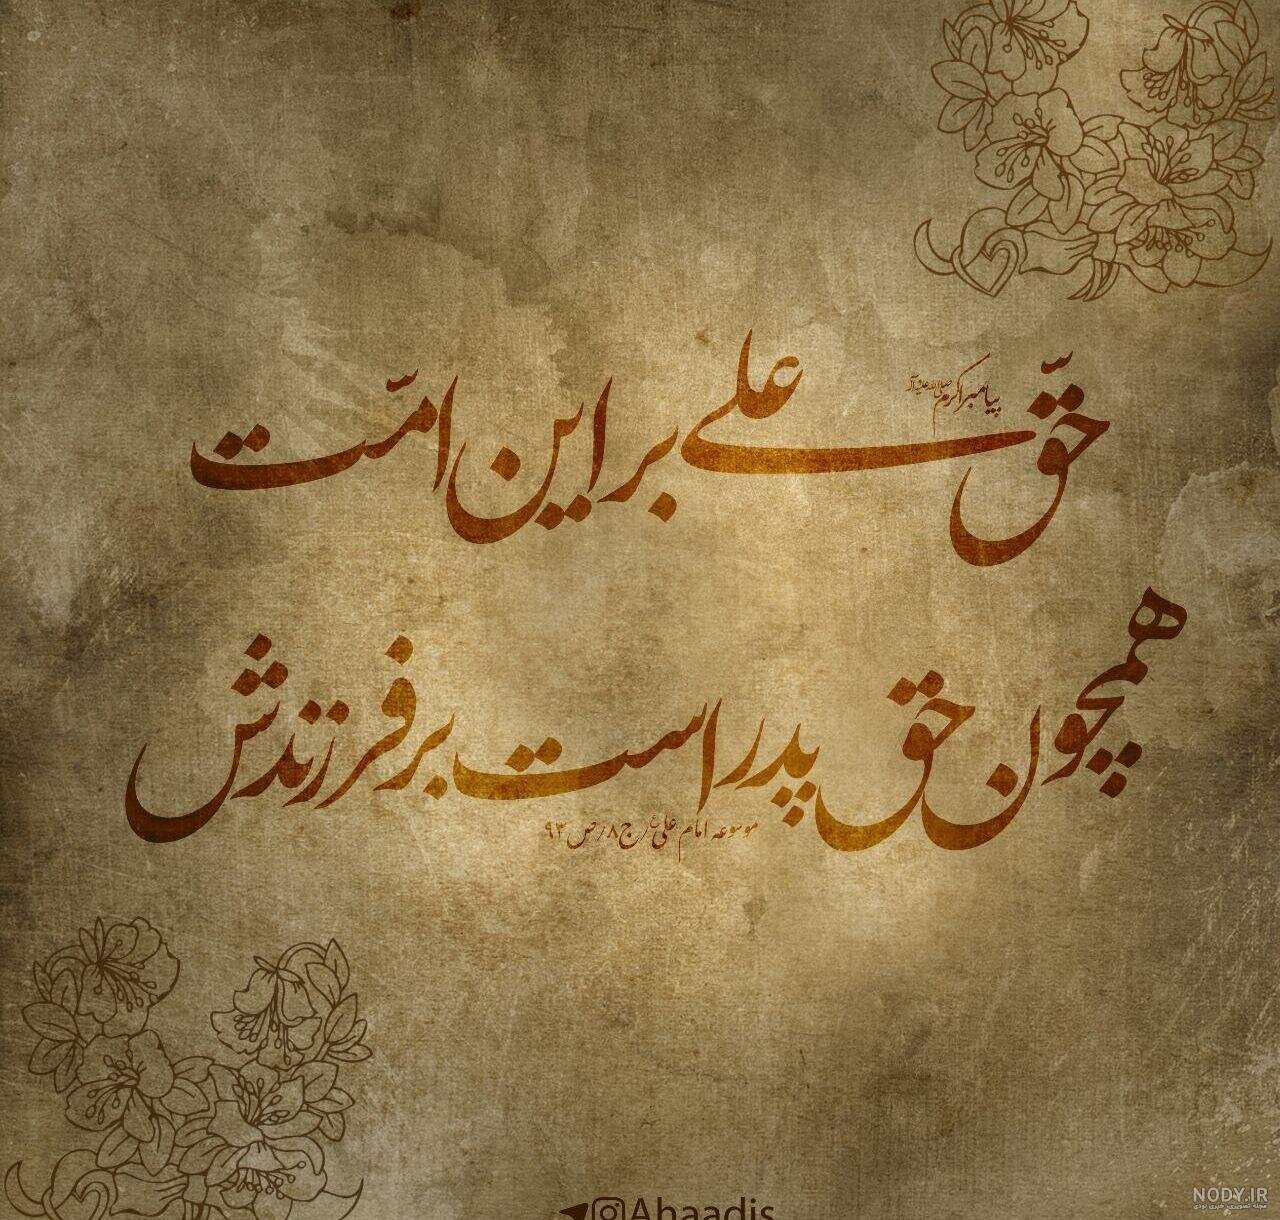 پیامبر اکرم صلی الله علیه وآله
حقّ علی بر این امّت
همچون حق پدر است بر فرزندش
موسوعه امام علی ع/ ج۸/ ص۹۳
Abaadis
NODY.IR
مجله تصویری، خبری نودی